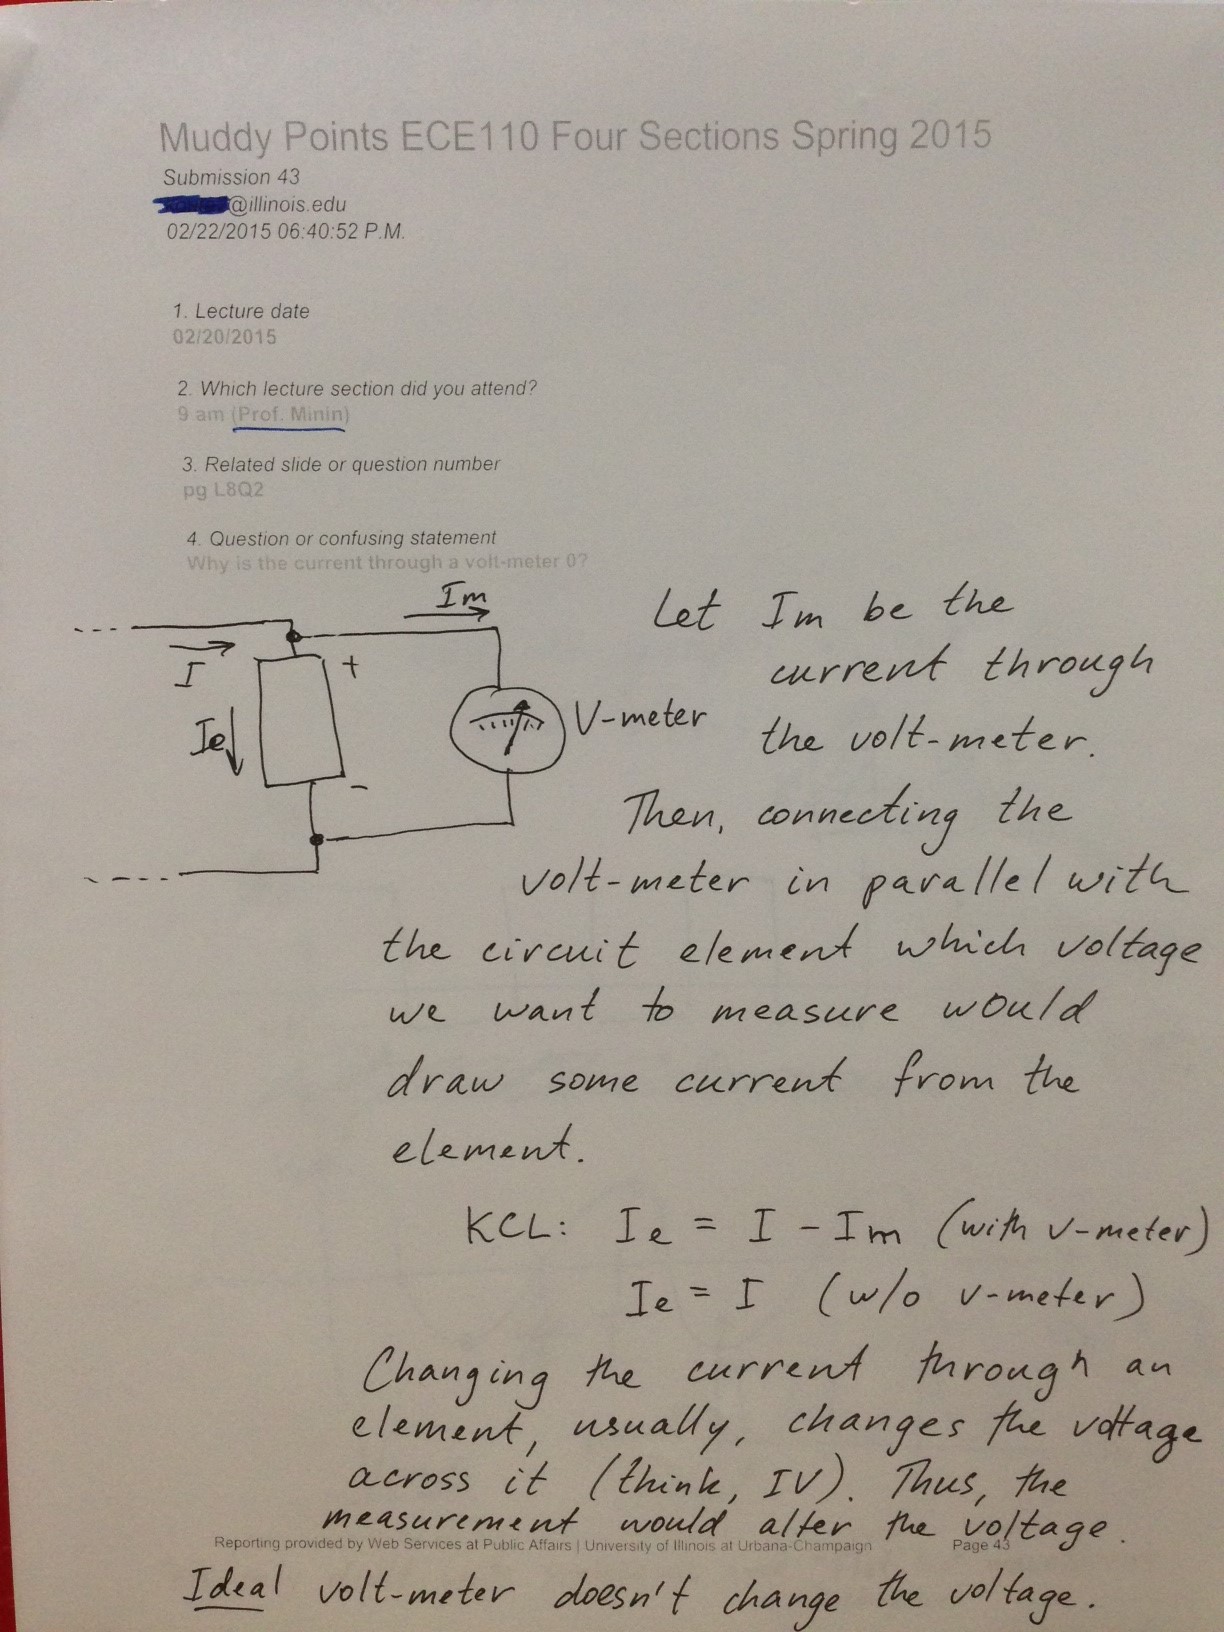 Muddy Points ECE110 Four Sections Spring 2015
Submission 43
@illinois.edu
02/22/2015 06:40:52 P.M.
1. Lecture date
02/20/2015
2. Which lecture section did you attend?
9 am (Prof. Minin)
3. Related slide or question number
pg L8Q2
4. Question or confusing statement
Why is the current through a volt-meter 0?
Im
I
+
Ie
-
V-meter
Let Im be the
current through
the volt-meter.
Then, connecting the
volt-meter in parallel with
the circuit element which voltage
we want to measure would
draw some current from the
element.
KCL: Ie = I - Im (with v-meter)
Ie = I (w/o v-meter)
Changing the current through an
element, usually, changes the voltage
across it (think, IV). Thus, the
measurement would alter the voltage.
Reporting provided by Web Services at Public Affairs | University of Illinois at Urbana-Champaign Page 43
Ideal volt-meter doesn't change the voltage.